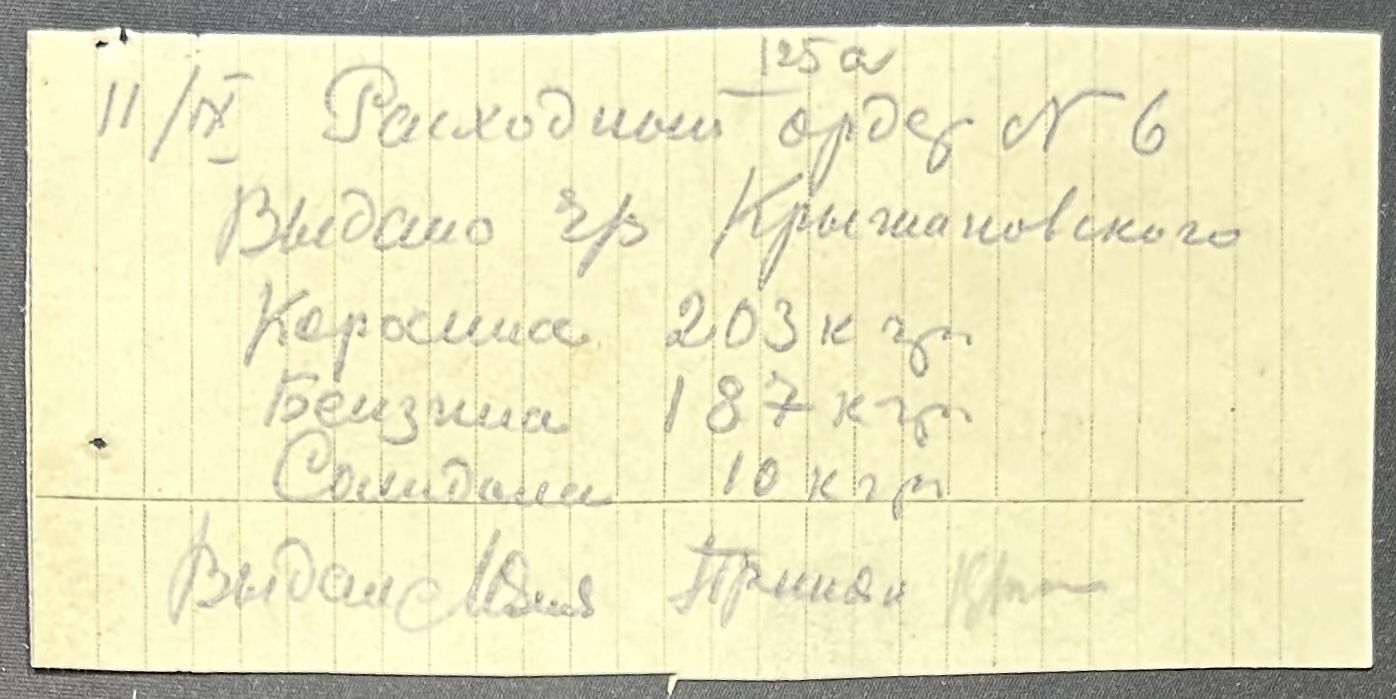 125а
11/IX Расходный ордер N 6
Выдано гр Крыжановского
Керасина 203 кгр
Бензина 187 кгр
Солидола 10 кгр
Выдал Принял